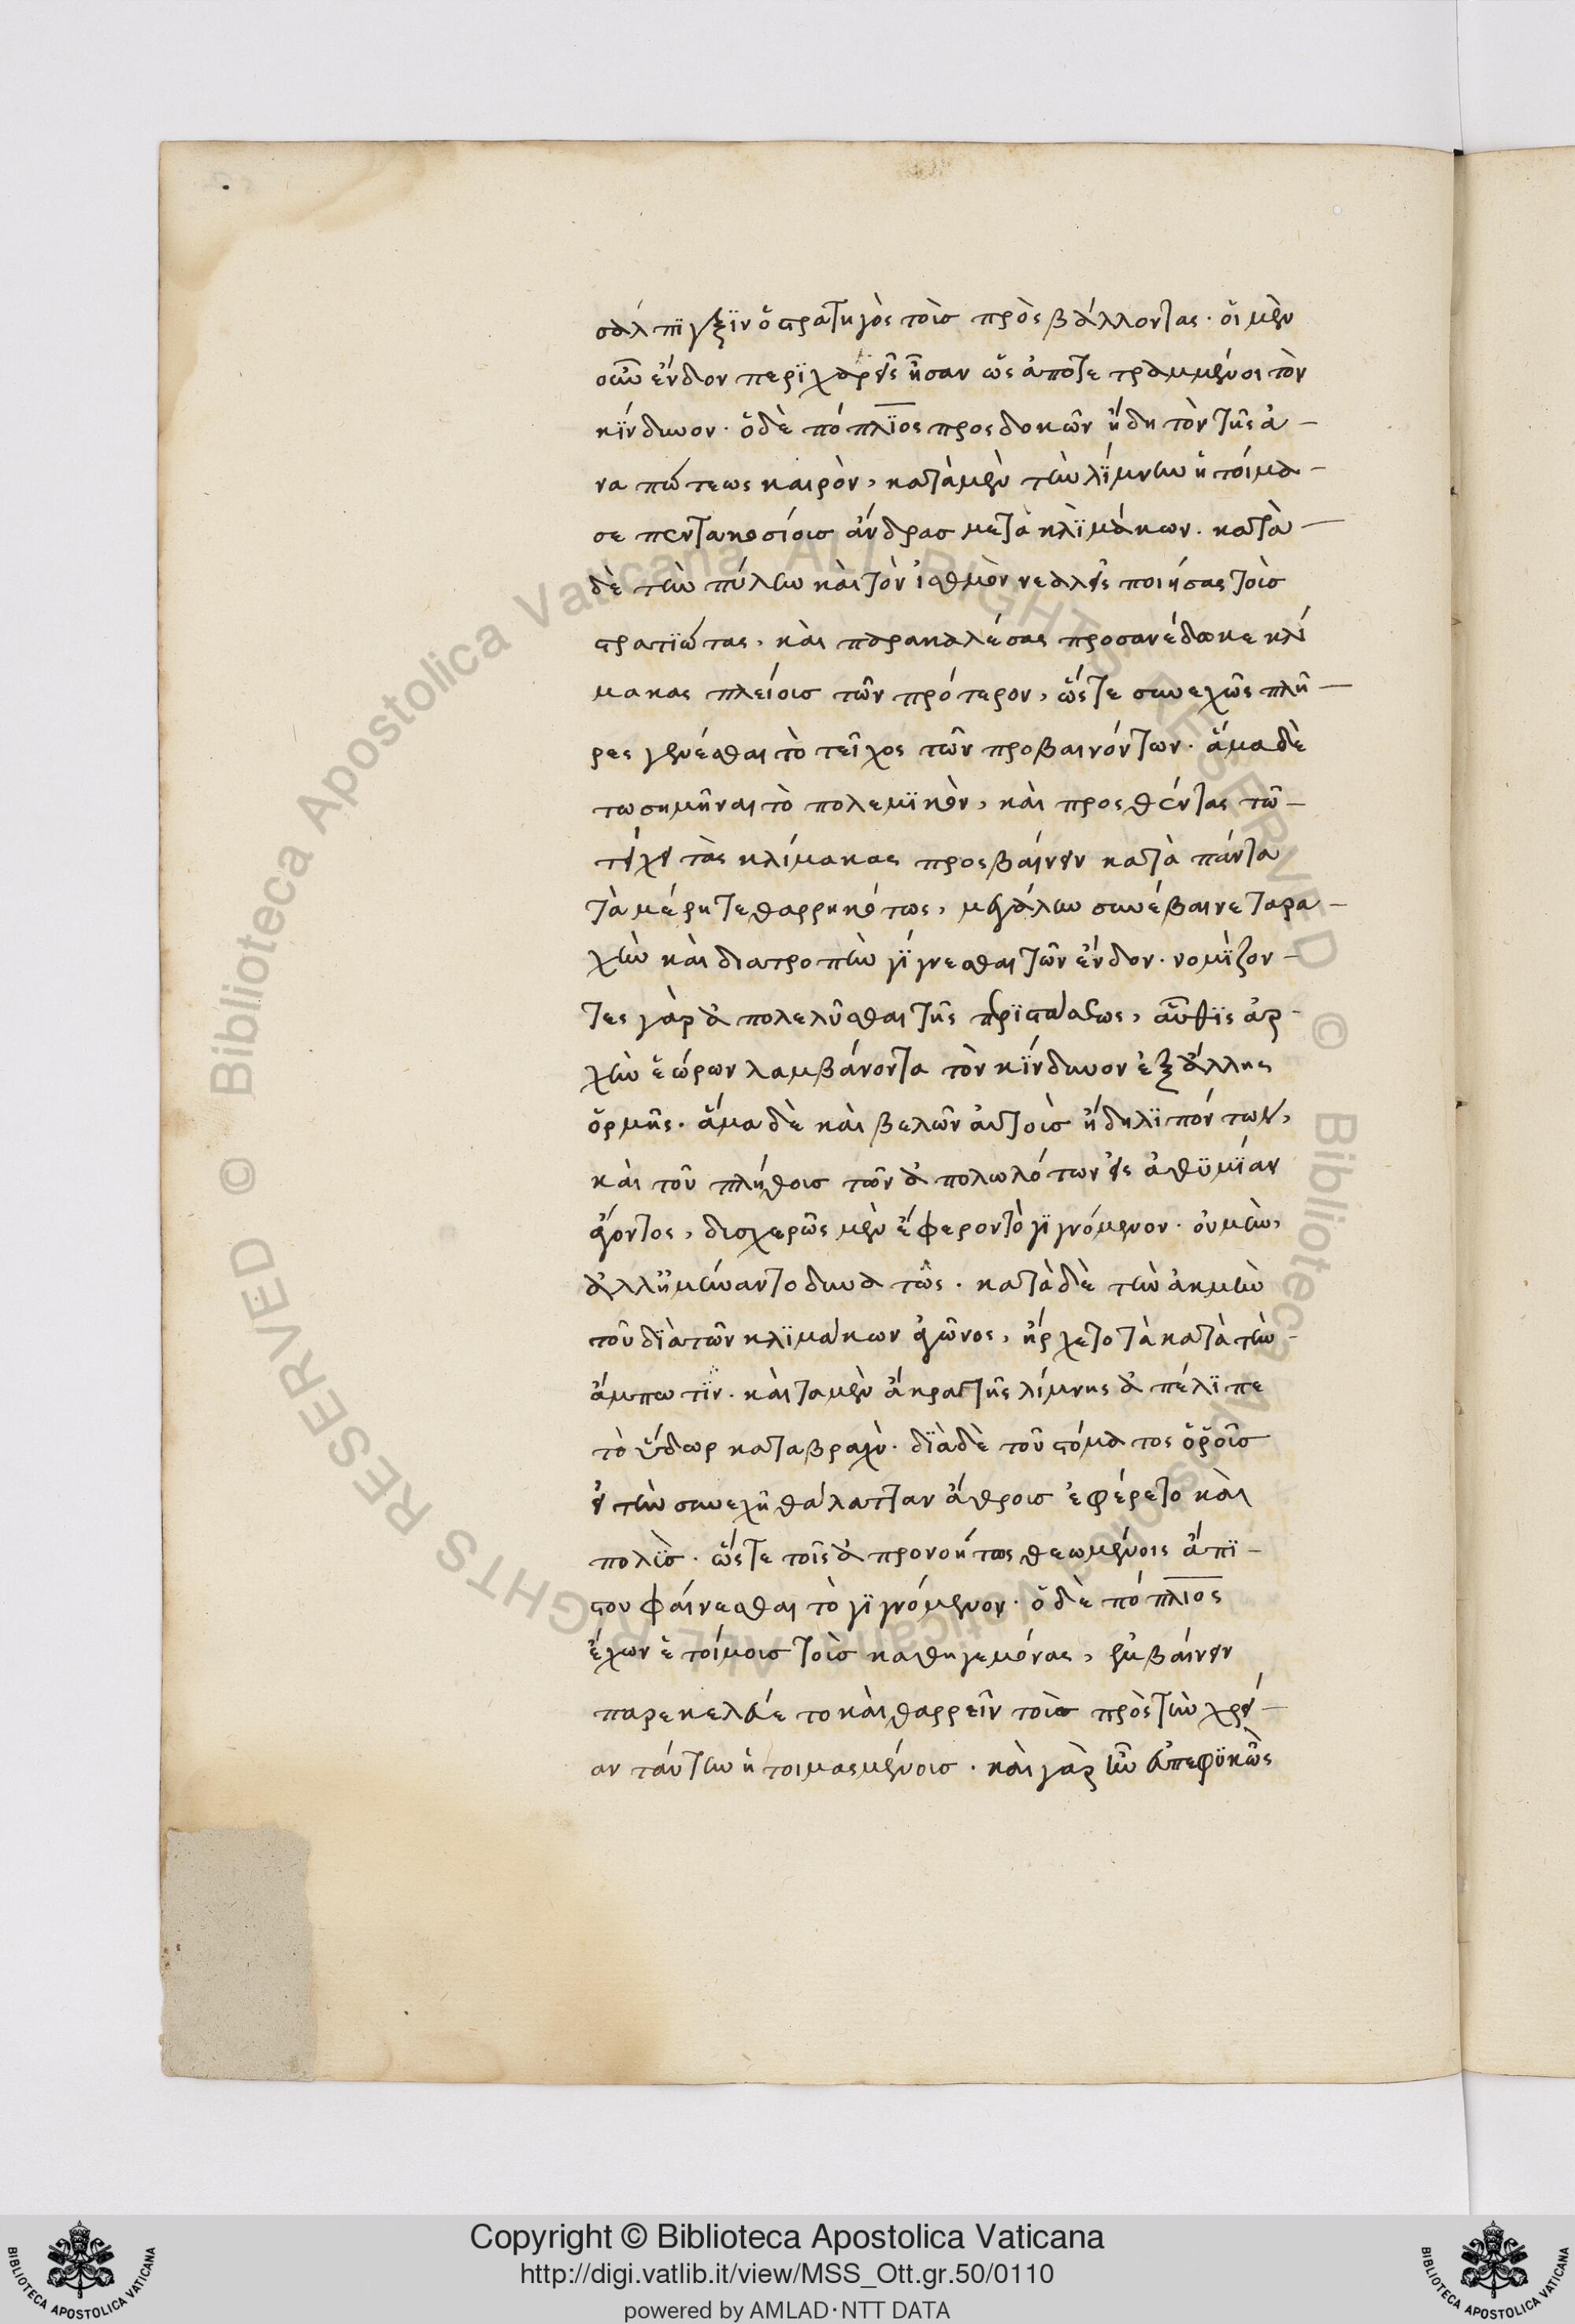 σάλπϊγξϊν ὁ στρατηγὸς τοὺσ πρὸς βάλλοντας· οἱ μὲν
οὖν ἔνδον περϊχαρεῖς ἦσαν ὡς ἀποτετραμμένοι τὸν
κϊνδυνον· ὁ δὲ πόπλϊος προσδοκῶν ἤδη τὸν τῆς ἀ-
ναπώτεως καιρὸν, κατὰ μὲν τὴν λϊμνην ἡτοίμα-
σε πεντακοσίουσ ἄνδρασ μετὰ κλϊμάκων. κατὰ
δὲ τὴν πύλην καὶ τὸν ἰσθμὸν νεαλεῖς ποιήσας τοὺσ
στρατϊώτας, καὶ παρακαλέσας προσανέδωκε κλί
μακας πλείουσ τῶν πρότερον, ὥστε συνεχῶς πλή-
ρες γενέσθαι τὸ τεῖχος τῶν προβαινόντων. ἅμα δὲ
τω σημῆναι τὸ πολεμϊκὸν, καὶ προσθέντας τῶ
τείχει τὰς κλίμακας προσβαίνειν κατὰ πάντα
τὰ μέρη τεθαρρηκότως, μεγάλην συνέβαινε ταρα-
χὴν καὶ διατροπὴν γϊγνεσθαι τῶν ἔνδον. νομϊζον-
τες γὰρ ἀπολελῦσθαι τῆς πε̣ρϊστάσεως, αὖθϊς ἀρ-
χὴν ἑώρων λαμβάνοντα τὸν κϊνδυνον ἐξ ἄλλης
ὁρμῆς. ἅμα δὲ καὶ βελῶν αὐτοὺσ ἤδη λϊπόντων,
καὶ τοῦ πλήθουσ τῶν ἀπολωλότων εἰς ἀθϋμϊαν
ἄγοντος, δυσχερῶς μὲν ἔφερον τὸ γϊγνόμενον. οὐ μὴν,
ἀλλ' ἠμύναντο δυνατῶς. κατὰ δὲ τὴν ἀκμὴν
τοῦ δϊὰ τῶν κλϊμάκων ἀγῶνος, ἤρχετο τὰ κατὰ τὴν
ἄμπωτϊν. καὶ τὰ μὲν ἄκρα τῆς λίμνης ἀπέλϊπε
τὸ ὕδωρ κατα βραχὺ. δϊὰ δὲ τοῦ στόματος ὁ ῥοῦσ
εἰ τὴν συνεχῆ θάλατταν ἄθρουσ ἐφέρετο καὶ
πολϋσ. ὥστε τοῖς ἀπρονοήτως θεωμένοις ἄπϊ-
στον φαίνεσθαι τὸ γϊγνόμενον. ὁ δὲ πόπλιος
ἔχων ἑτοίμουσ τοὺσ καθηγεμόνας, ἐμβαίνειν
παρεκελεύετο καὶ θαρρεῖν τοὺσ πρὸς τὴν χρεί-
αν ταύτην ἡτοιμασμένουσ. καὶ γὰρ ἦν εὖ πεφϋκὼς